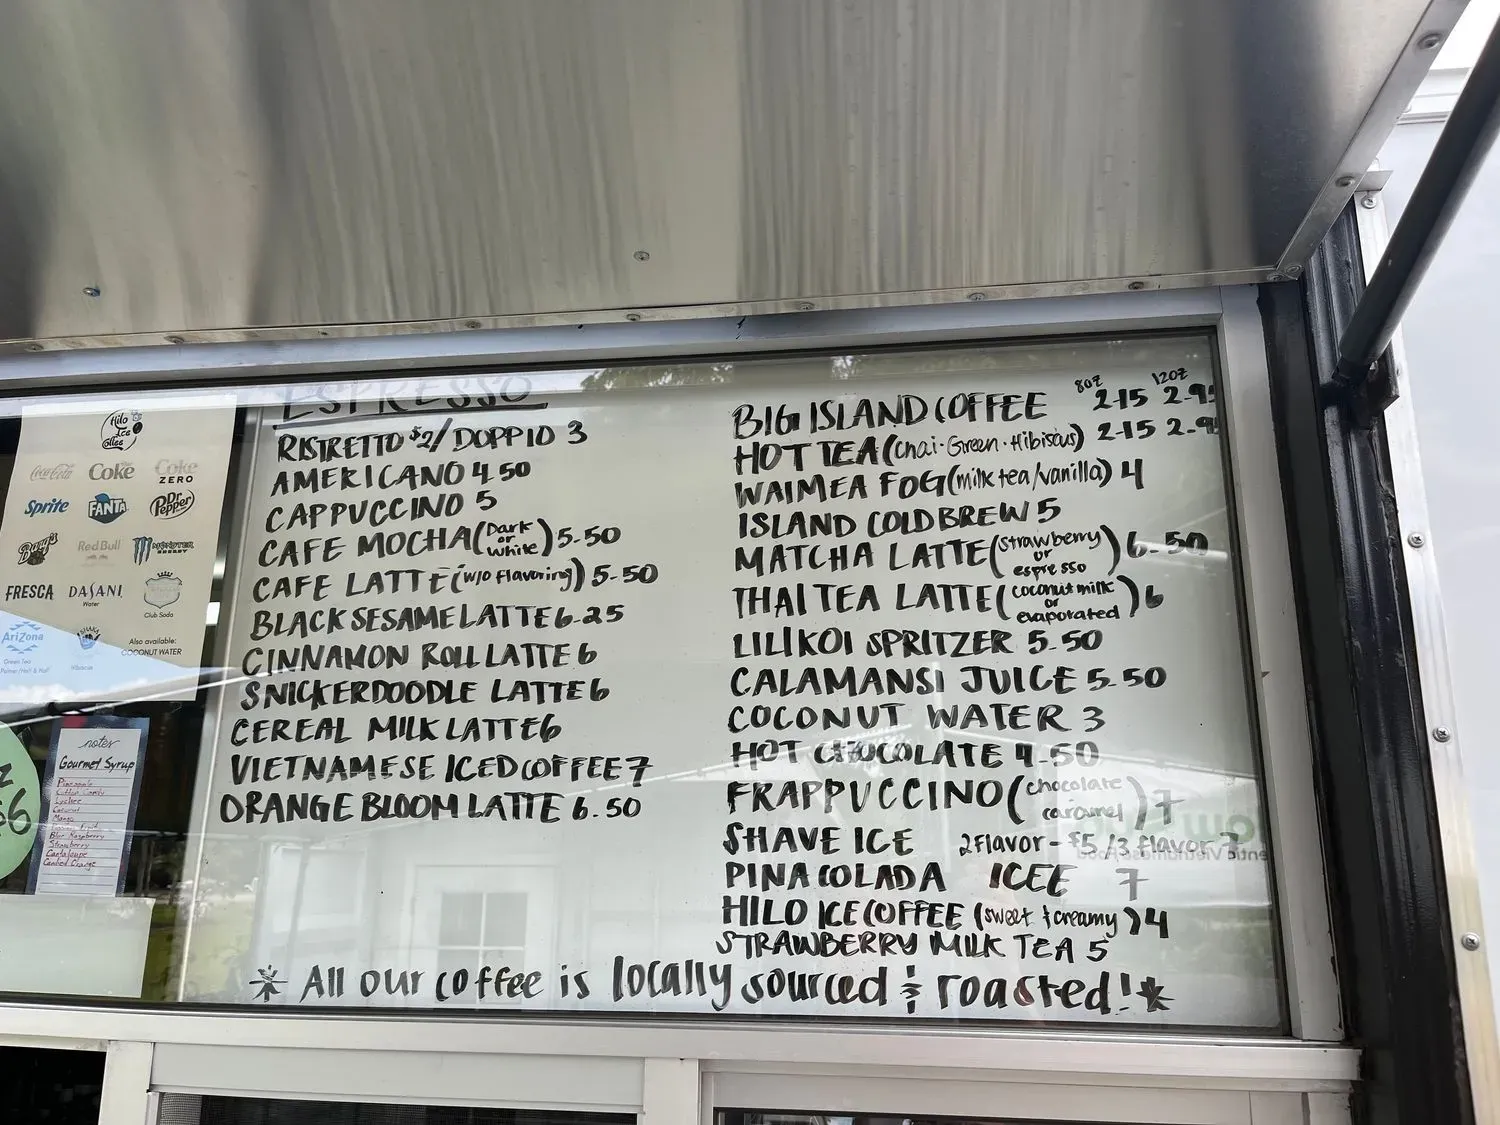 Hilo
Ice
Coffee
Coca-Cola Coke Coke
ZERO
Sprite FANTA Dr Pepper
Barq's Red Bull MONSTER
ENERGY
FRESCA DASANI
Water
Club Soda
AriZona
Green Tea
Hibiscus
Also available:
COCONUT WATER
notes
Gourmet Syrup
Pineapple
Cotton Candy
Lychee
Coconut
Mango
Passion Fruit
Blue Raspberry
Strawberry
Cantaloupe
Candied Orange
ESPRESSO
RISTRETTO $2/DOPPIO 3
AMERICANO 4.50
CAPPUCCINO 5
CAFE MOCHA (Dark or white) 5-50
CAFE LATTE (w/o flavoring) 5-50
BLACK SESAME LATTE 6-25
CINNAMON ROLL LATTE 6
SNICKERDOODLE LATTE 6
CEREAL MILK LATTE 6
VIETNAMESE ICED COFFEE 7
ORANGE BLOOM LATTE 6.50
8oz 12oz
BIG ISLAND COFFEE 2-15 2-95
HOT TEA (chai·Green·Hibiscus) 2-15 2-95
WAIMEA FOG (milk tea/vanilla) 4
ISLAND COLD BREW 5
MATCHA LATTE (strawberry or espresso) 6-50
THAI TEA LATTE (coconut milk or evaporated) 6
LILIKOI SPRITZER 5-50
CALAMANSI JUICE 5-50
COCONUT WATER 3
HOT CHOCOLATE 4-50
FRAPPUCCINO (chocolate caramel) 7
SHAVE ICE 2 Flavor - $5 /3 flavor 7
PINA COLADA ICEE 7
HILO ICE COFFEE (sweet & creamy) 4
STRAWBERRY MILK TEA 5
* All our coffee is locally sourced & roasted! *